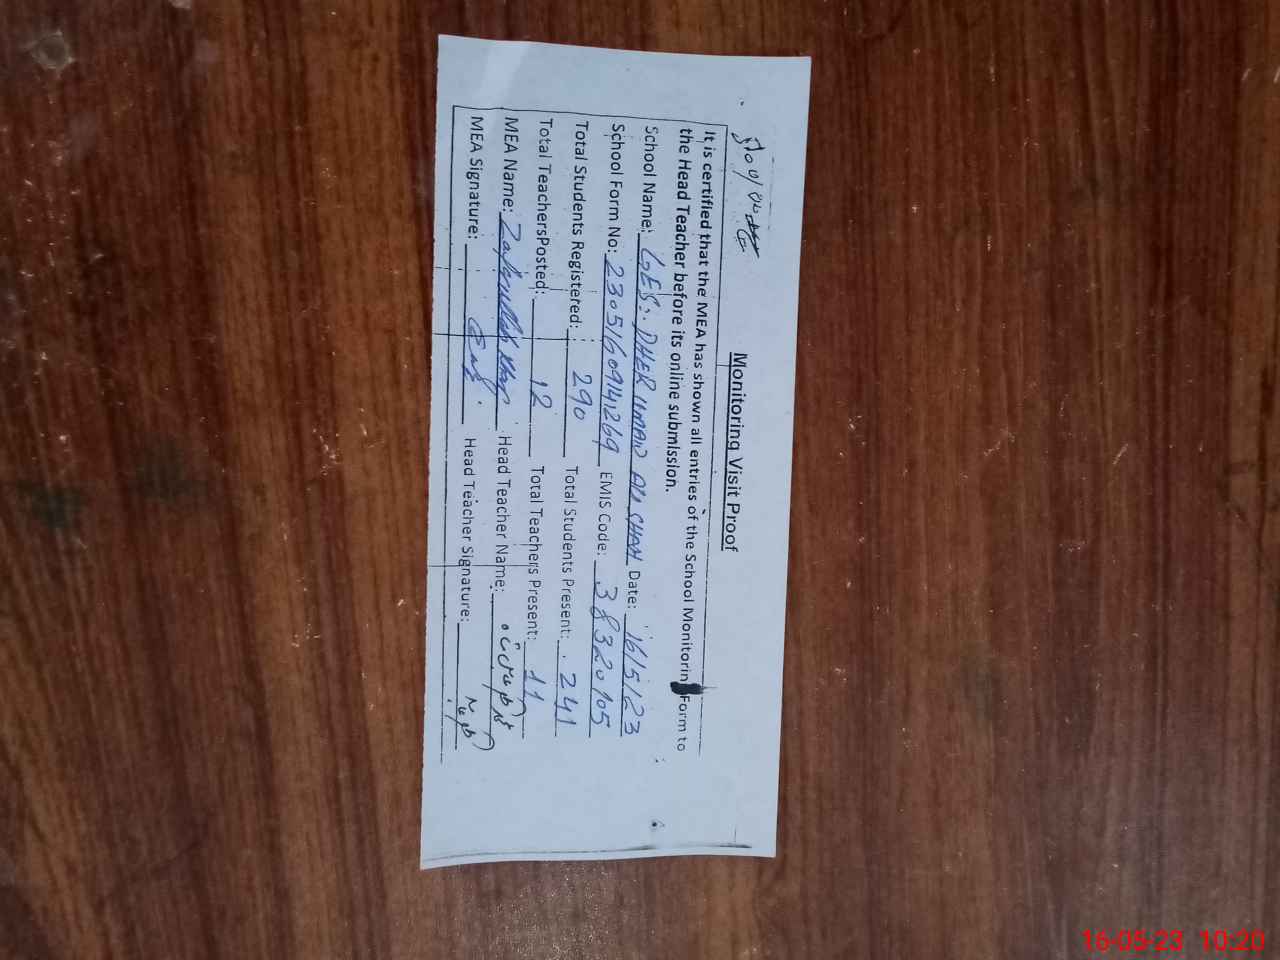 Monitoring Visit Proof
It is certified that the MEA has shown all entries of the School Monitorin Form to
the Head Teacher before its online submission.
School Name: GES: DHER UMAR ALI SHAH Date: 16/5/23
School Form No: 23051609141269 EMIS Code: 38320105
Total Students Registered: 290 Total Students Present: 241
Total TeachersPosted: 12 Total Teachers Present: 11
MEA Name: Zafrullah Khan Head Teacher Name:
MEA Signature: Head Teacher Signature:
16-05-23 10:20